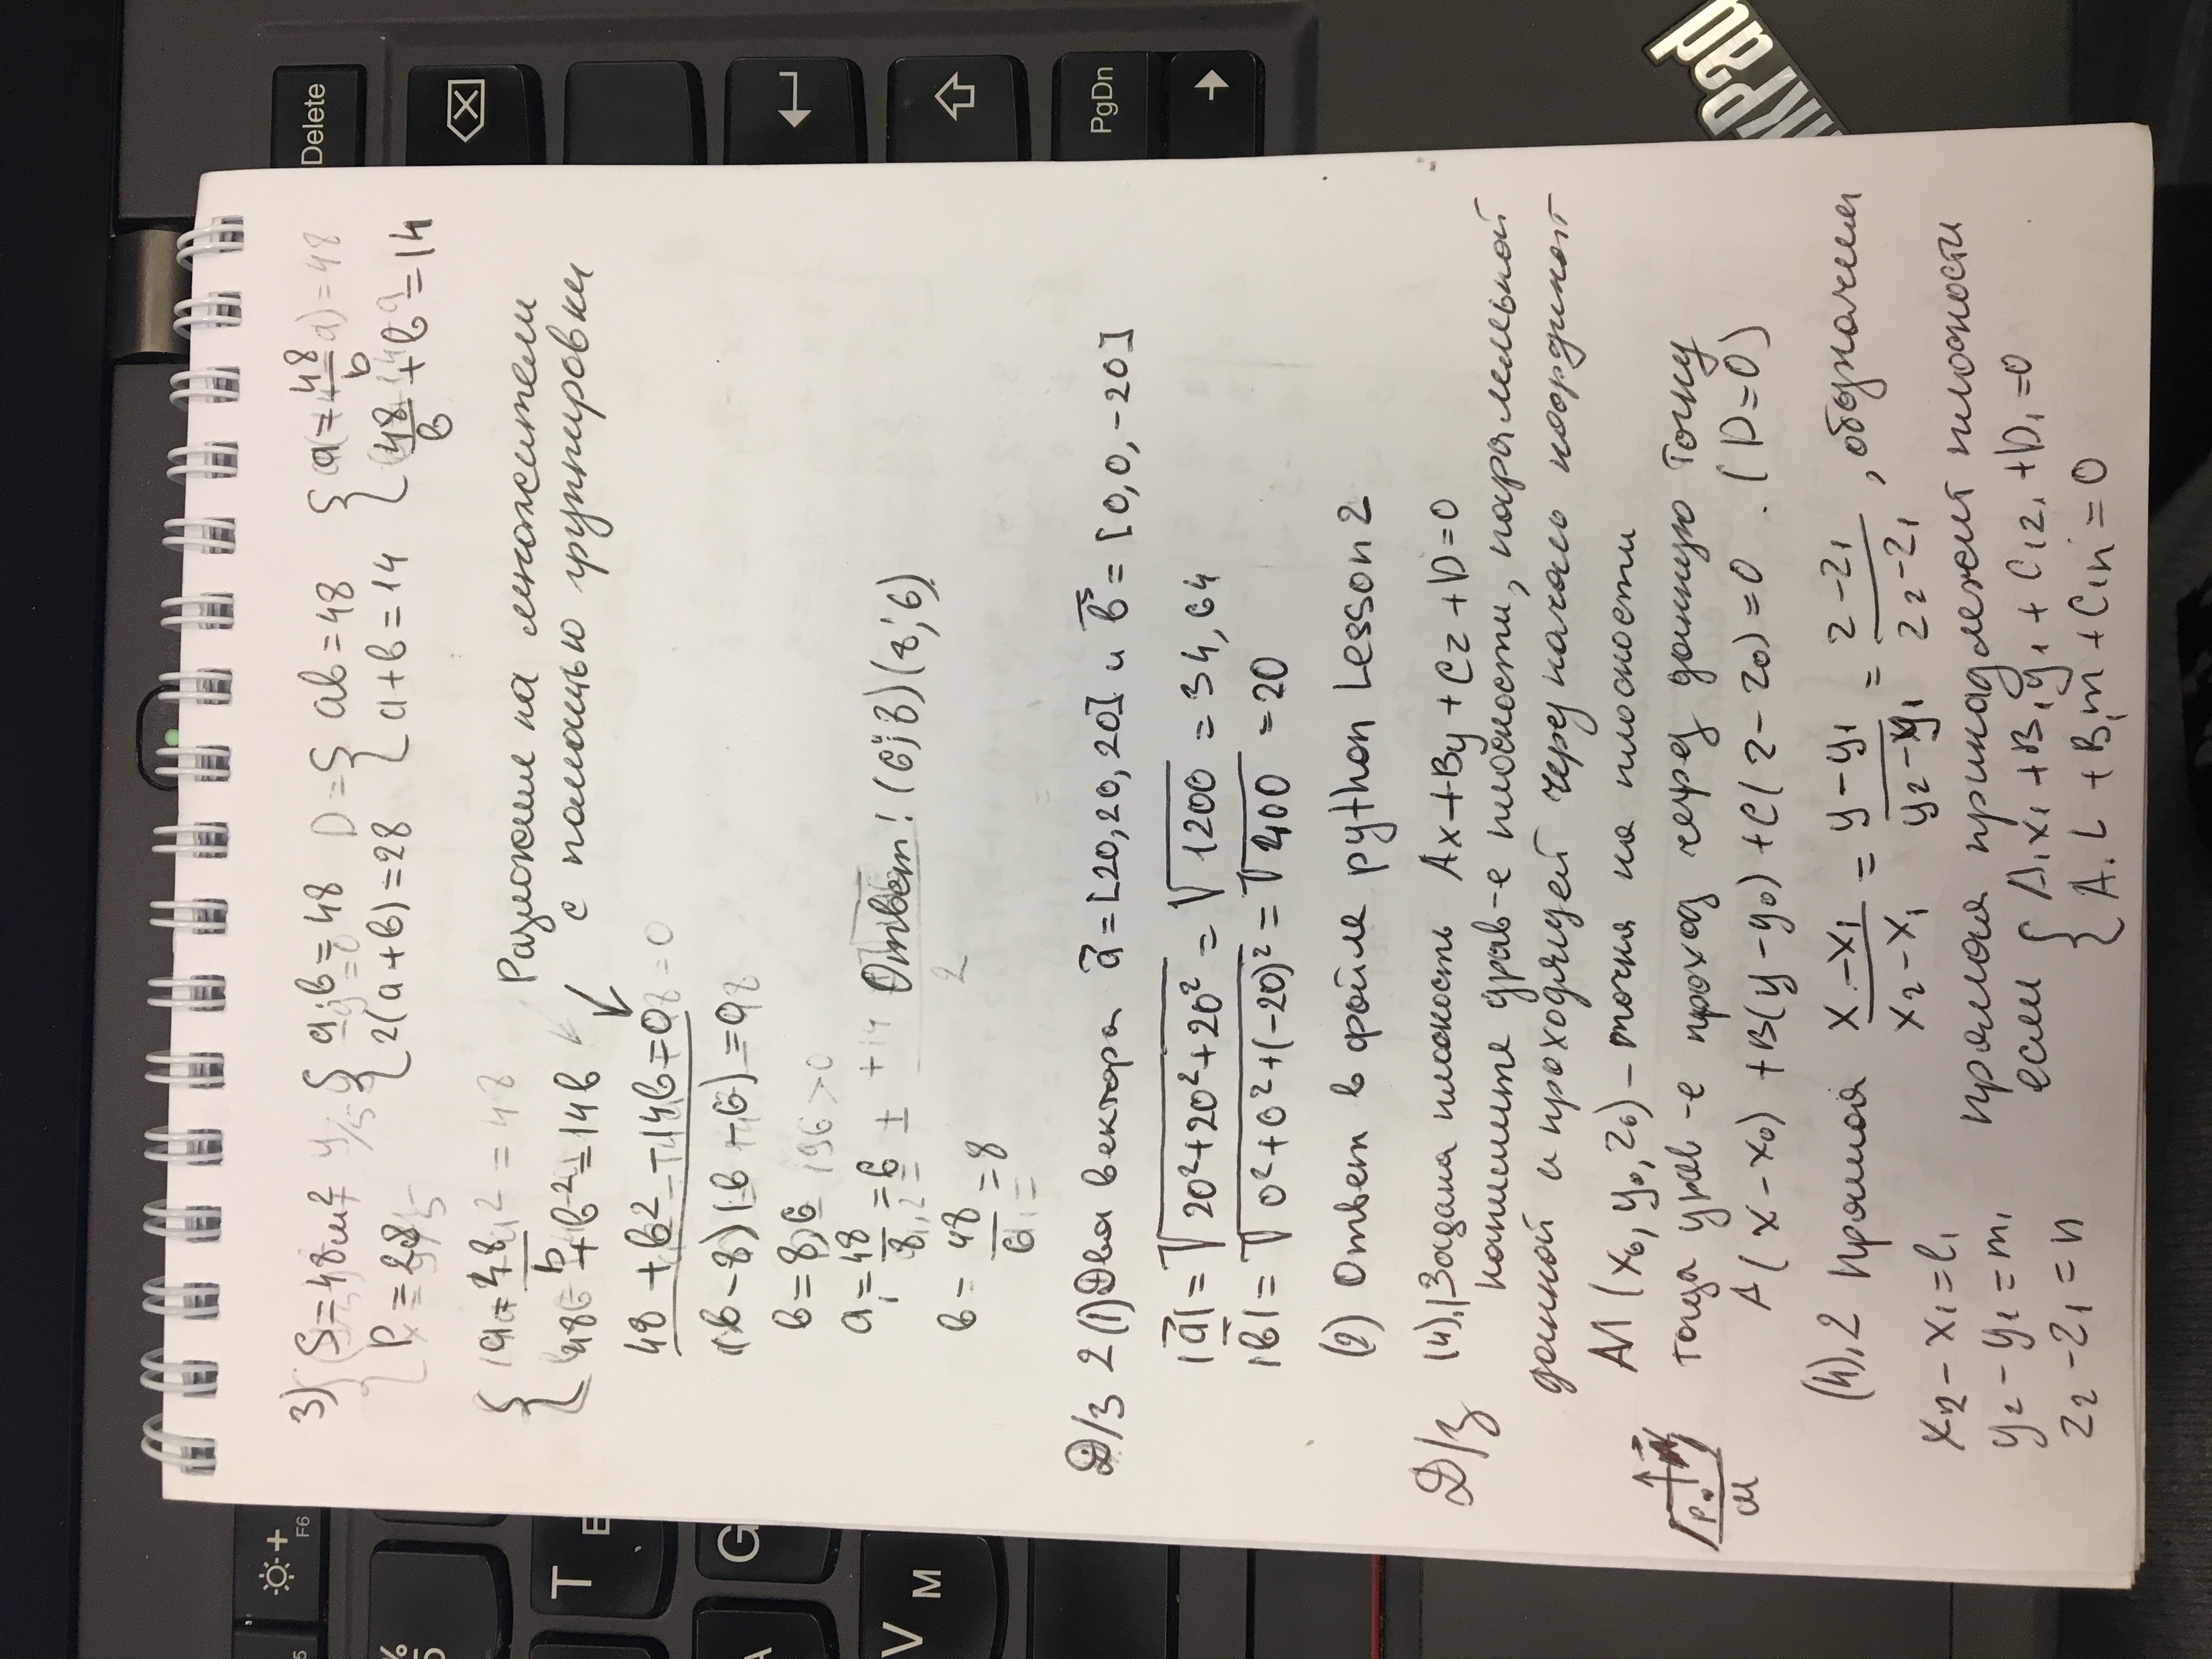 3) { S=48 м² { a·b=48 { ab=48 { a=48/b
P=28 2(a+b)=28 a+b=14 48/b+b=14
{ a=48/b Разложим на множители
48+b²=14b с помощью группировки
48+b²-14b=0
(b-8)(b-6)=0
b=8,6
a=48/8=6 Ответ: (6;8)(8;6)
48/6=8
Д/З 2 (1) Два вектора a=[20,20,20] и b=[0,0,-20]
|a|=√20²+20²+20²=√1200=34,64
|b|=√0²+0²+(-20)²=√400=20
(2) Ответ в файле python Lesson 2
Д/З (4).1 Задана плоскость Ax+By+Cz+D=0
напишите урав-е плоскости, параллельной
данной и проходящей через начало координат
M(x₀,y₀,z₀)-точка на плоскости
тогда урав-е проход через данную точку
A(x-x₀)+B(y-y₀)+C(z-z₀)=0. (D=0)
(4).2 Прямая x-x₁/x₂-x₁=y-y₁/y₂-y₁=z-z₁/z₂-z₁, обозначим
x₂-x₁=l,
y₂-y₁=m,
z₂-z₁=n
прямая принадлежит плоскости
если { A₁x₁+B₁y₁+C₁z₁+D₁=0
A₁L+B₁m+C₁n=0
Delete
PgDn
F6
T
G
V
M
A
%
5